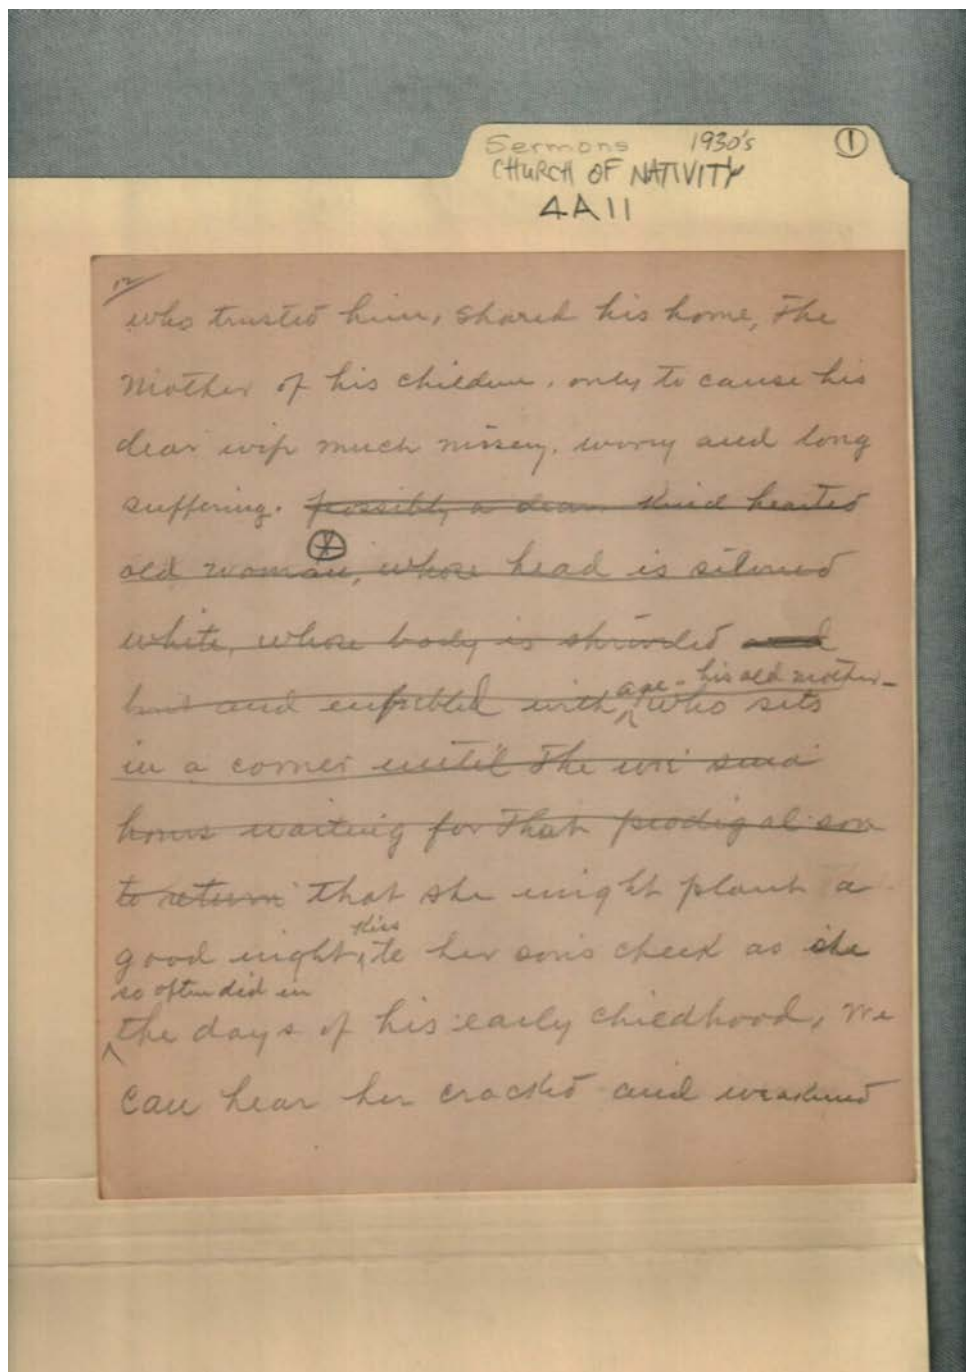 Sermons 1930's
①
CHURCH OF NATIVITY
4A11
12
who trusted him, shared his home, The
Mother of his children, only to cause his
dear wife much missery, worry and long
suffering. possibly a dear kind hearted
old woman, whose head is silvered
white, whose body is shriveled and
bent and enfeebled with age - his old mother - who sits
in a corner until The wee smal
hours waiting for That prodigal son
to return that she might plant a
good night kiss to her sons cheek as she
so often did in
the days of his early childhood, We
can hear her cracked and weakened